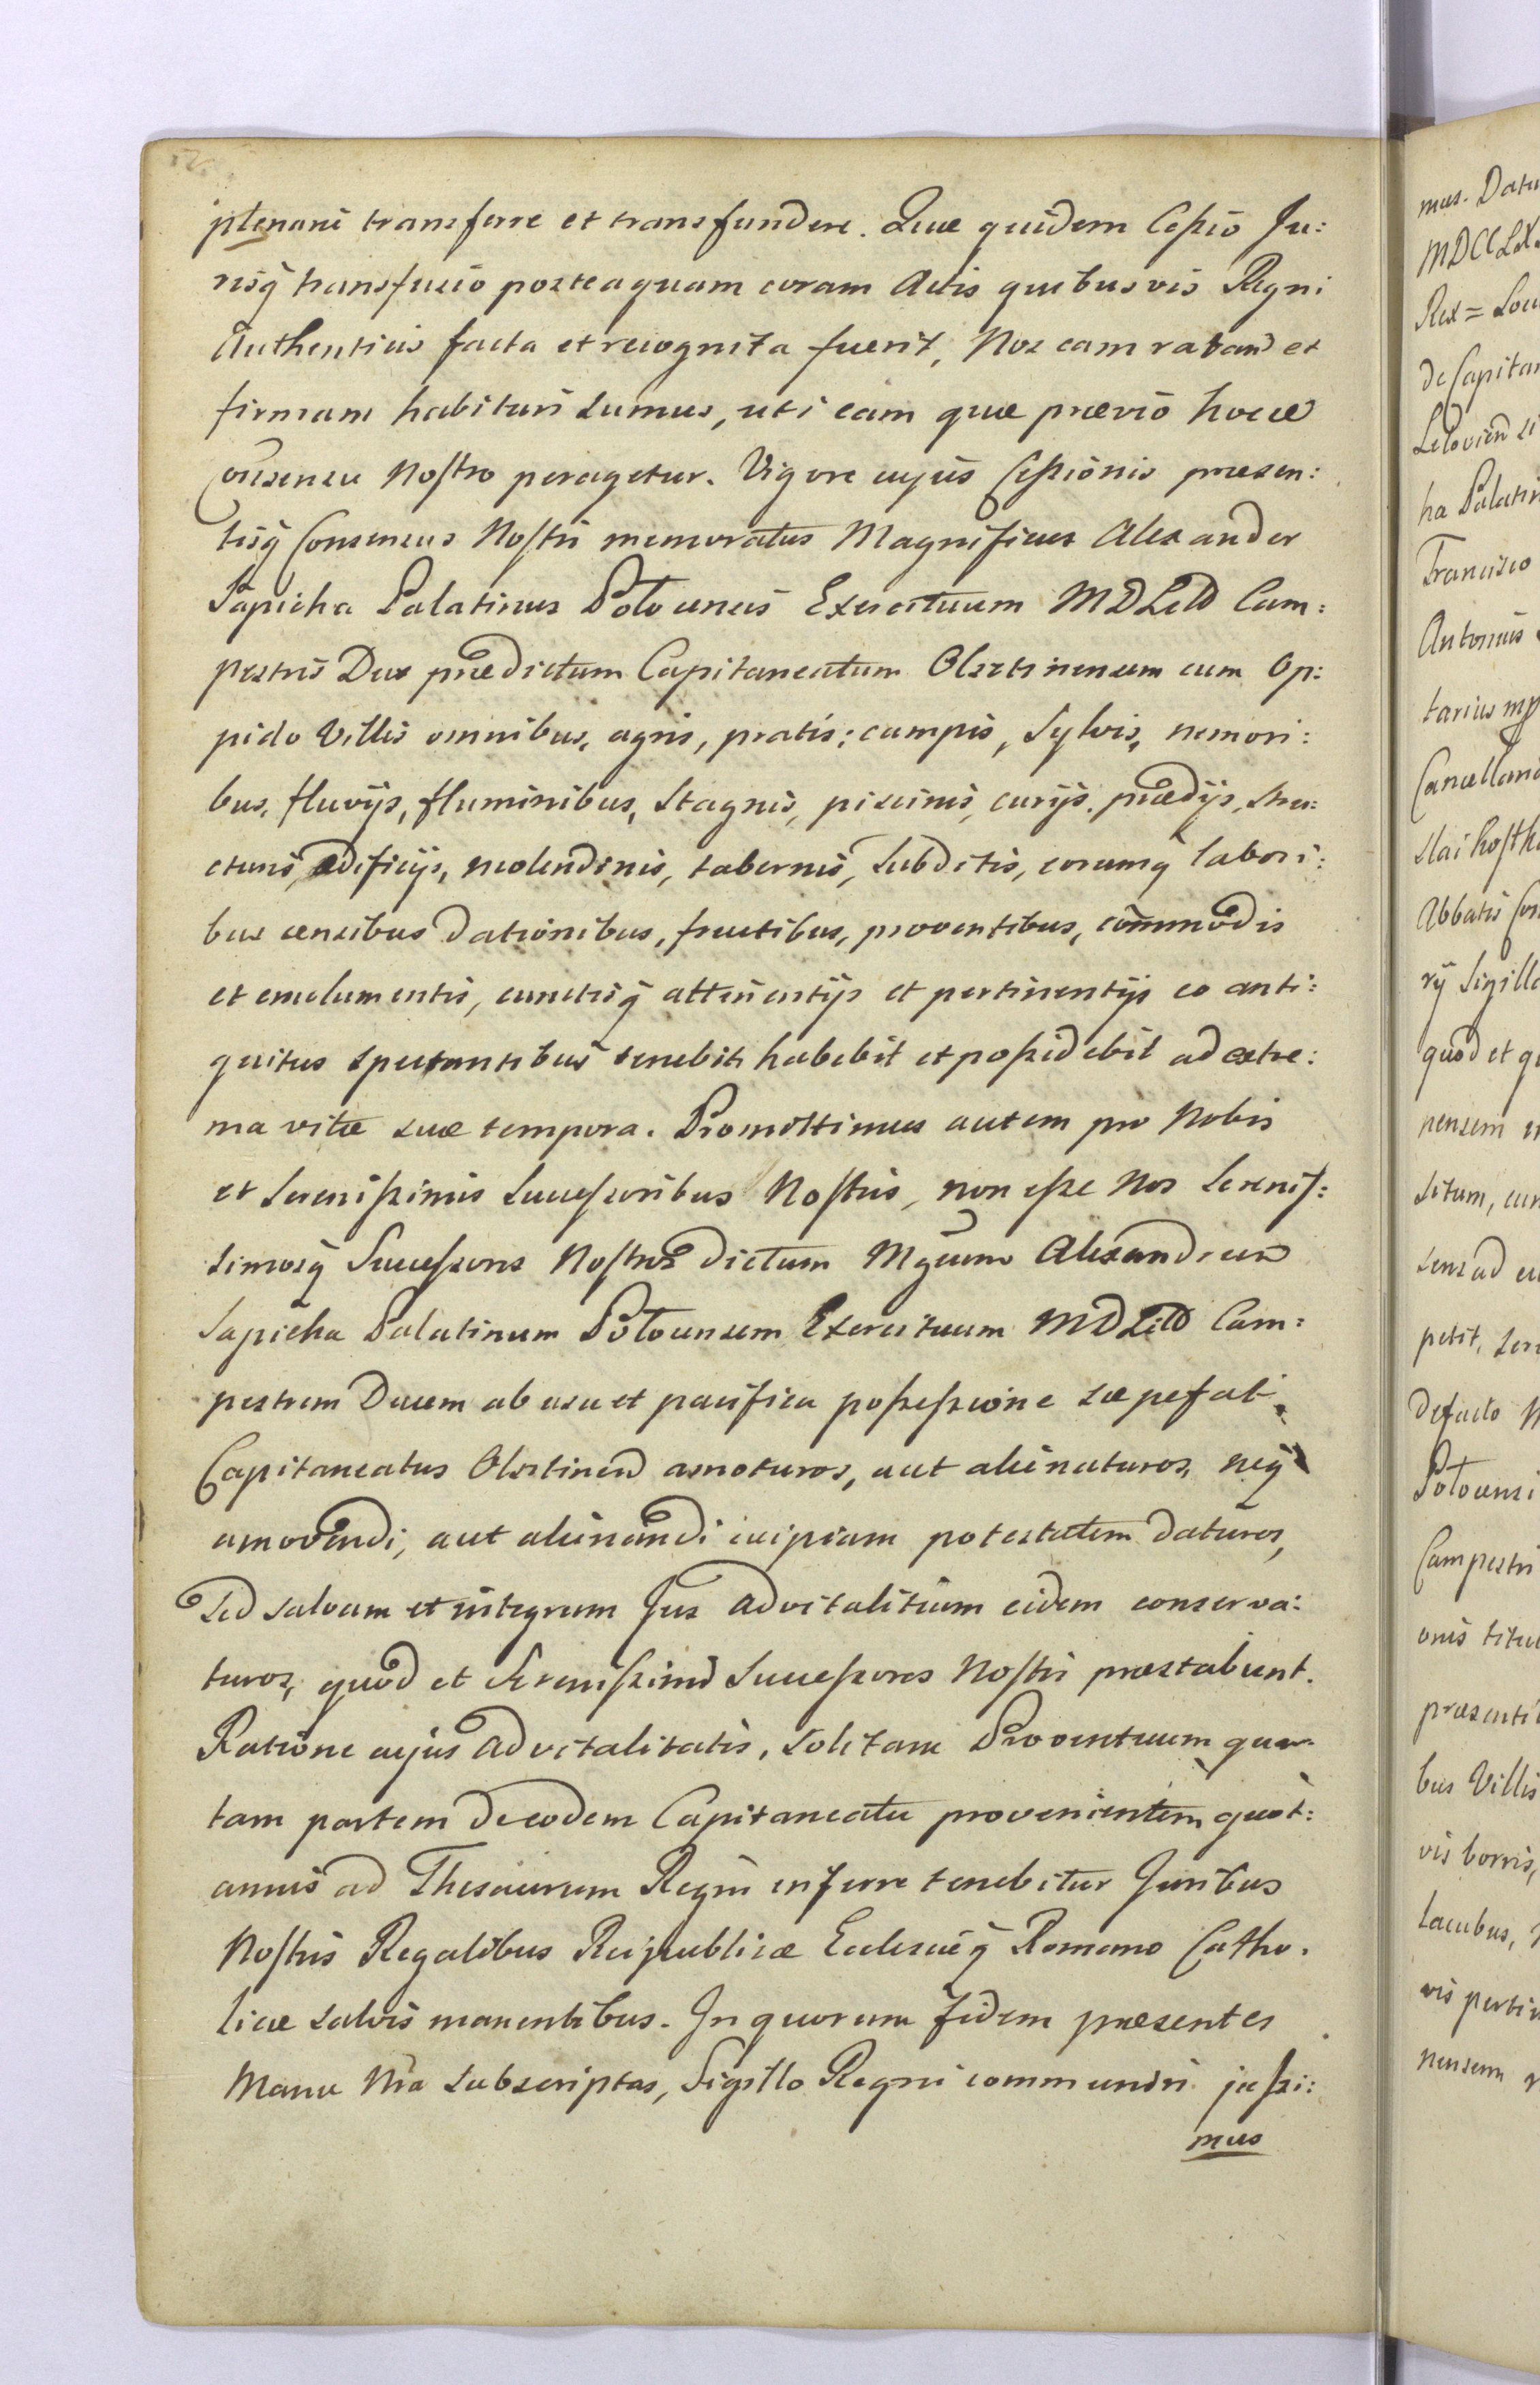 52.
plenarie transferre et transfundere. Quæ quidem Cessio Ju:
risq̃ transfusio posteaquam coram Actis quibusvis Regni
Authenticis facta et recognita fuerit, Nos eam ratam et
firmam habituri sumus, uti eam quæ prævio hocce
Consensu Nostro peragetur. Vigore cujus Cessionis præsen:
tisq̃ Consensus Nostri memoratus Magnificus Alexander
Sapieha Palatinus Polocensis Exercituum MDLitt Cam:
pestris Dux prædictum Capitaneatum Olsztinensem cum Op:
pido Villis omnibus, agris, pratis, campis, Sylvis, nemori:
bus, fluvijs, fluminibus, Stagnis, piscinis, curijs, prædijs, stru:
cturis, ædificijs, molendinis, tabernis, Subditis, eorumq̃ labori:
bus censibus dationibus, fructibus, proventibus, com̃modis
et emolumentis, cunctisq̃ attinentijs et pertinentijs eo anti:
quitus spectantibus tenebit habebit et possidebit ad extre:
ma vitæ suæ tempora. Promittimus autem pro Nobis
et Serenissimis Successoribus Nostris, non esse Nos Serenis:
simosq̃ Successores Nostros dictum Mgcum Alexandrum
Sapieha Palatinum Polocensem Exercituum MDLitt Cam:
pestrem Ducem ab usu et pacifica possessione sæpefati
Capitaneatus Olsztinen amoturos, aut alienaturos, neq̃
amovendi, aut alienandi cuipiam potestatem daturos,
Sed salvum et integrum Jus advitalitium eidem conserva:
turos, quod et Serenissimi Successores Nostri præstabunt.
Ratione cujus advitalitatis, solitam Proventuum quar
tam partem de eodem Capitaneatu provenientem quot:
annis ad Thesaurum Regni inferre tenebitur Juribus
Nostris Regalibus Reipublicæ Ecclesiæq̃ Romano Catho.
licæ salvis manentibus. In quorum fidem præsentes
Manu Nra subscriptas, Sigillo Regni communiri jussi:
mus
mus. Datu
MDCCLX
Rex =
de Capitan
ha Palatin
Francisco
Antonius
tarius mp
Cancellari
Abbatis Con
rij Sigillo
quod et qu
nensem
situm, cum
sens ad
petit,
defacto
Polocensi
Campestri
onis titul
præsenti
bus Villis
vis borris,
lacubus,
vis pertin
nensem